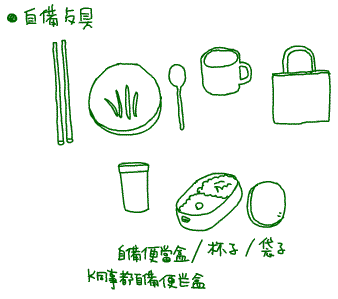 ● 自備餐具
自備便當盒/杯子/袋子
K同事都自備便当盒